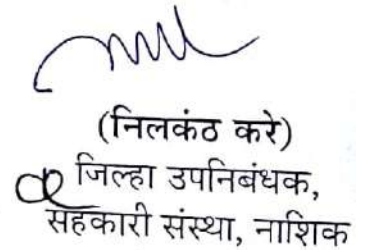 (निलकंठ करे)
जिल्हा उपनिबंधक,
सहकारी संस्था, नाशिक